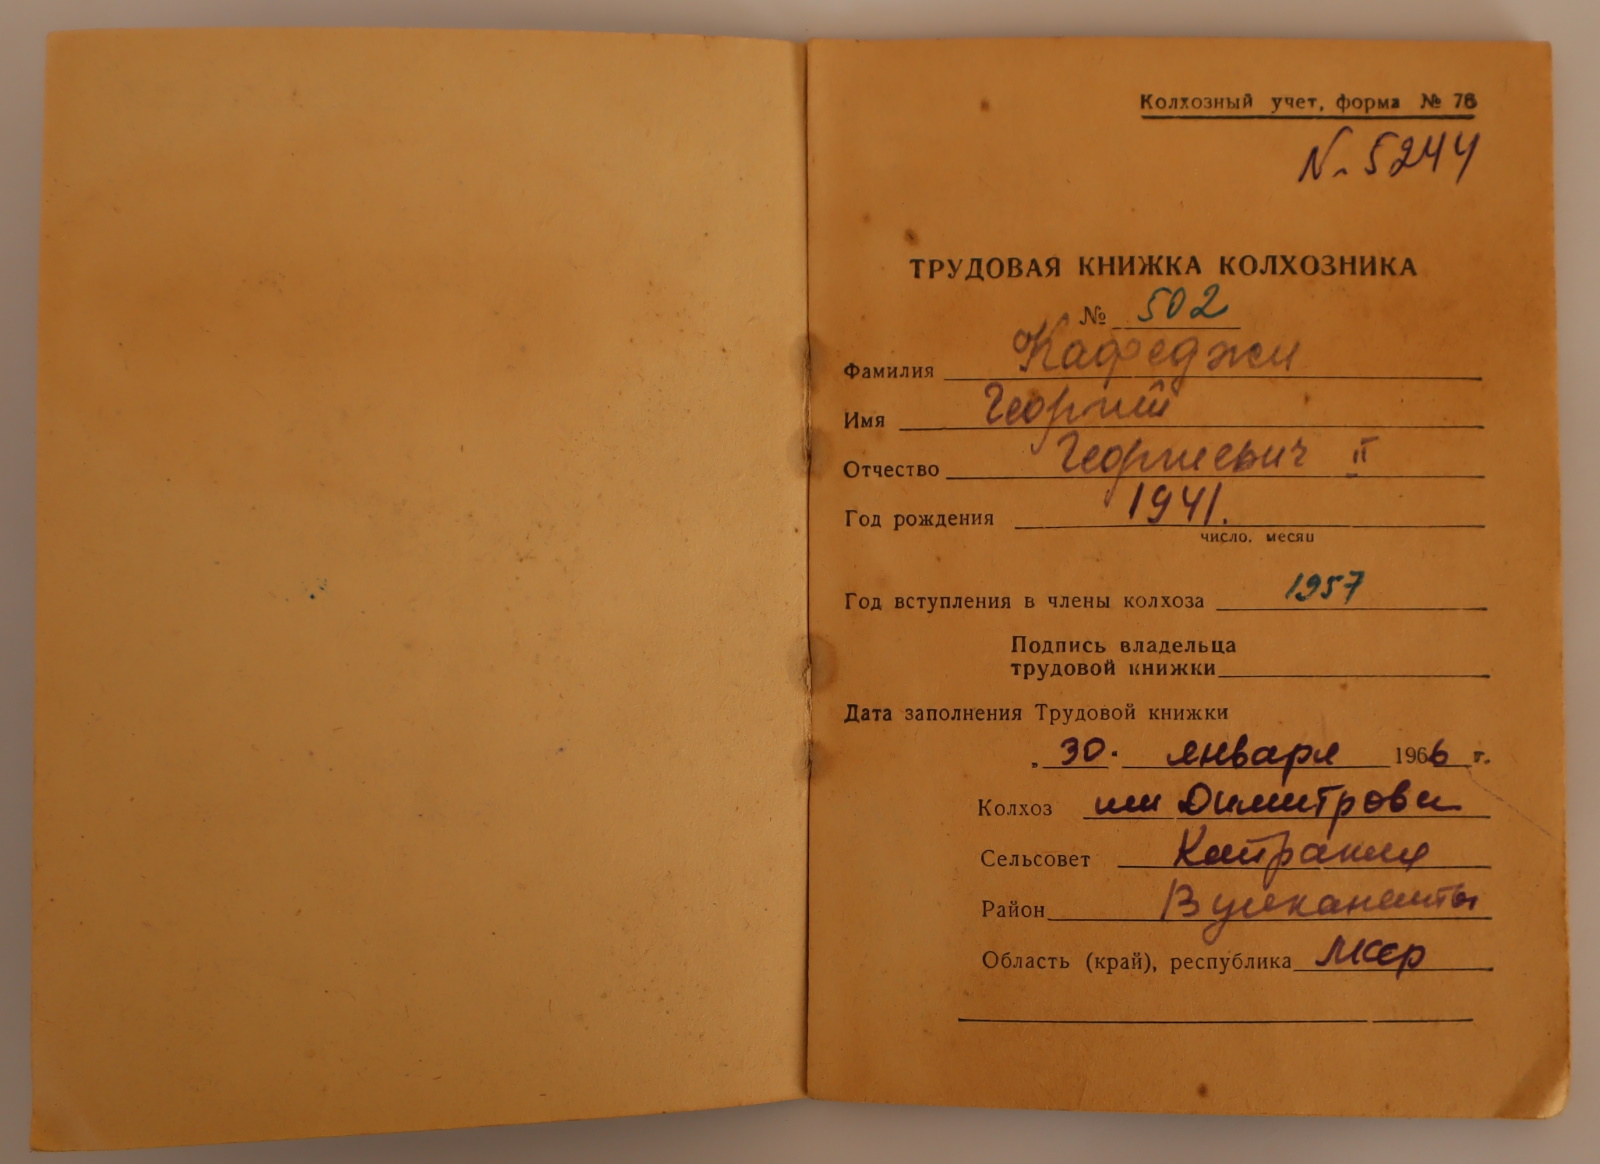 Колхозный учет, форма № 76
N. 5244
ТРУДОВАЯ КНИЖКА КОЛХОЗНИКА
№ 502
Фамилия Кафеджи
Имя Георгий
Отчество Георгиевич II
Год рождения 1941.
число, месяц
Год вступления в члены колхоза 1957
Подпись владельца
трудовой книжки
Дата заполнения Трудовой книжки
„ 30 " января 1966 г.
Колхоз им Димитрова
Сельсовет
Район Вулканешты
Область (край), республика МССР